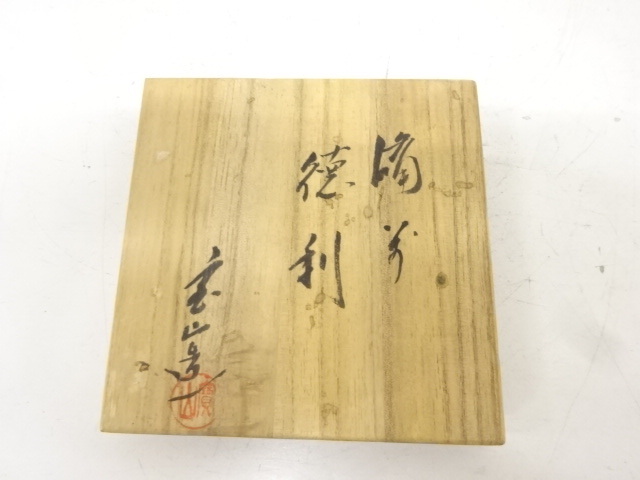 備前
徳利
宝山造